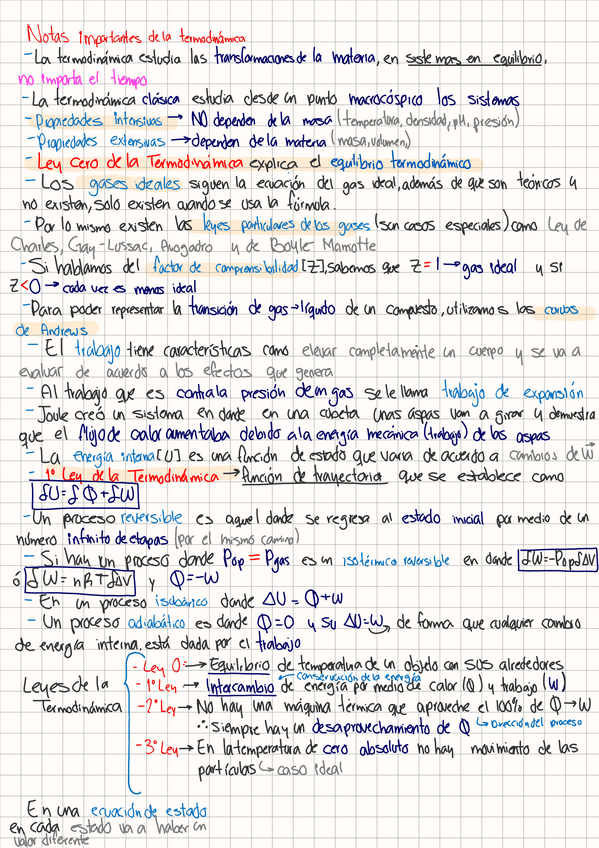 Notas importantes de la termodinámica
- La termodinámica estudia las transformaciones de la materia, en sistemas en equilibrio,
no importa el tiempo
- La termodinámica clásica estudia desde un punto macrocóspico los sistemas
- Propiedades intensivas → NO dependen de la masa (temperatura, densidad, pH, presión)
- Propiedades extensivas → dependen de la materia (masa, volumen)
- Ley Cero de la Termodinámica explica el equilibrio termodinámico
- Los gases ideales siguen la ecuación del gas ideal, además de que son teóricos y
no existen, solo existen cuando se usa la fórmula.
- Por lo mismo existen las leyes particulares de los gases (son casos especiales) como Ley de
Charles, Gay-Lussac, Avogadro y de Boyle Mariotte
- Si hablamos del factor de comprensibilidad [Z], sabemos que Z = 1 → gas ideal y si
Z < 0 → cada vez es menos ideal
- Para poder representar la transición de gas → líquido de un compuesto, utilizamos las curvas
de Andrews
- El trabajo tiene características como elevar completamente un cuerpo y se va a
evaluar de acuerdo a los efectos que genera
- Al trabajo que es contra la presión de un gas se le llama trabajo de expansión
- Joule creó un sistema en donde en una cubeta unas aspas van a girar y demuestra
que el flujo de calor aumentaba debido a la energía mecánica (trabajo) de las aspas
- La energía interna [U] es una función de estado que varia de acuerdo a cambios de W
- 1° Ley de la Termodinámica → función de trayectoria que se establece como
∫U = ∫Q + ∫W
- Un proceso reversible es aquel donde se regresa al estado inicial por medio de un
número infinito de etapas (por el mismo camino)
- Si hay un proceso donde Pop = Pgas es un isotérmico reversible en donde ∫W = -Pop∫ΔV
ó ∫W = nRT∫ΔV y Q = -W
- En un proceso isobárico donde ΔU = Q + W
- Un proceso adiabático es donde Q = 0 y su ΔU = W, de forma que cualquier cambio
de energía interna, está dada por el trabajo
Leyes de la Termodinámica
- Ley 0: → Equilibrio de temperatura de un objeto con sus alrededores
conservación de la energía
- 1° Ley → Intercambio de energía por medio de calor (Q) y trabajo (W)
- 2° Ley → No hay una máquina térmica que aproveche el 100% de Q → W
∴ siempre hay un desaprovechamiento de Q ↳ Dirección del proceso
- 3° Ley → En la temperatura de cero absoluto no hay movimiento de las
partículas ↳ caso ideal
En una ecuación de estado
en cada estado va a haber un
valor diferente